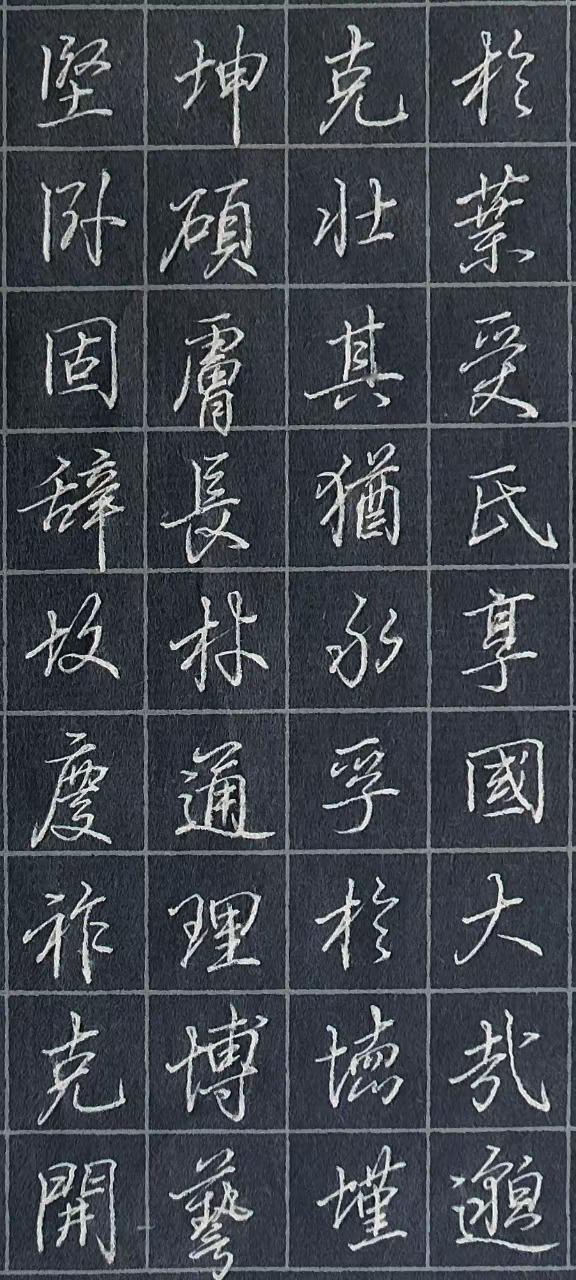 於葉受氏享國大哉邈
克壯其猶永孚於德墐
坤碩膚長材通理博藝
堅卧固辭故慶祚克開